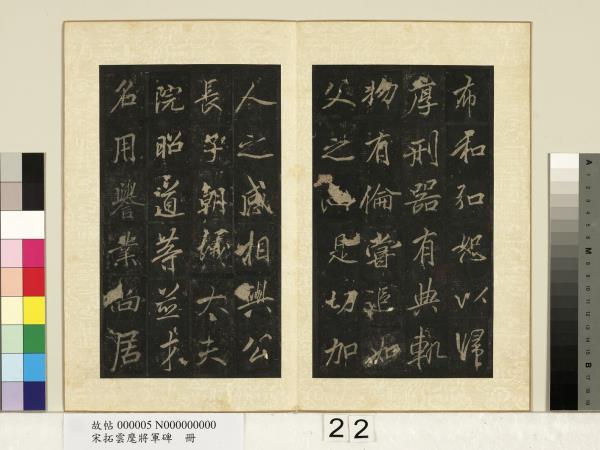 布和弘恕以歸
厚刑器有典軌
物有倫嘗如
父之是切加
人之感相與公
長子朝議大夫
院昭道等並求
名用譽業尚居
故帖 000005 N000000000
宋拓雲麾將軍碑 冊
22